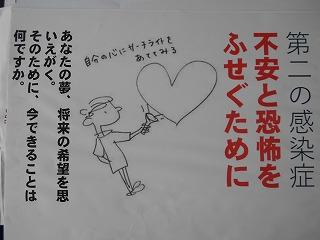 第二の感染症
不安と恐怖を
ふせぐために
自分の心にサーチライトを
あててみる
あなたの夢、将来の希望を思
いえがく。
そのために、今できることは
何ですか。